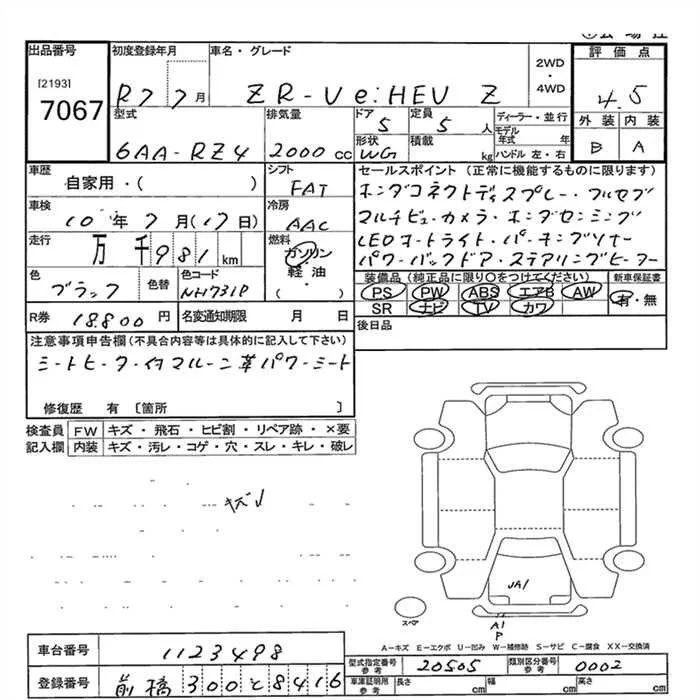 出品番号
[2193]
7067
初度登録年月
R7 7月
車名・グレード
ZR-V e:HEV Z
2WD
・
4WD
評価点
4.5
外装 内装
B A
型式
6AA-RZ4
排気量
2000 cc
ドア
5
定員
5人
形状
WG
積載
kg
ディーラー・並行
モデル年式 年
ハンドル 左・右
車歴
自家用・( )
車検
10年7月(17日)
走行
万千981km
色
ブラック
色替
色コード
NH731P
シフト
FAT
冷房
AAC
燃料
ガソリン
軽油
( )
R券 18.800円
名変通知期限 月 日
セールスポイント(正常に機能するものに限ります)
ホンダコネクトディスプレー・フルセグ
マルチビューカメラ・ホンダセンシング
LEDオートライト・パーキングソナー
パワーバックドア・ステアリングヒーター
装備品(純正品に限り○をつけてください)
PS PW ABS エアB AW
SR ナビ TV カワ
新車保証書
有・無
後日品
注意事項申告欄(不具合内容等は具体的に記入して下さい)
シートヒーター付マルーン革パワーシート
修復歴 有 〔箇所 〕
検査員記入欄
FW キズ・飛石・ヒビ割・リペア跡・×要
内装 キズ・汚レ・コゲ・穴・スレ・キレ・破レ
キズ小
JA1
スペア
A1
P
A-キズ E-エクボ U-凹み W-補修跡 S-サビ C-腐食 XX-交換済
車台番号 1123498
登録番号 前橋300と8416
型式指定番号 参考 20505
類別区分番号 参考 0002
車庫証明用 参考 長さ cm 幅 cm 高さ cm